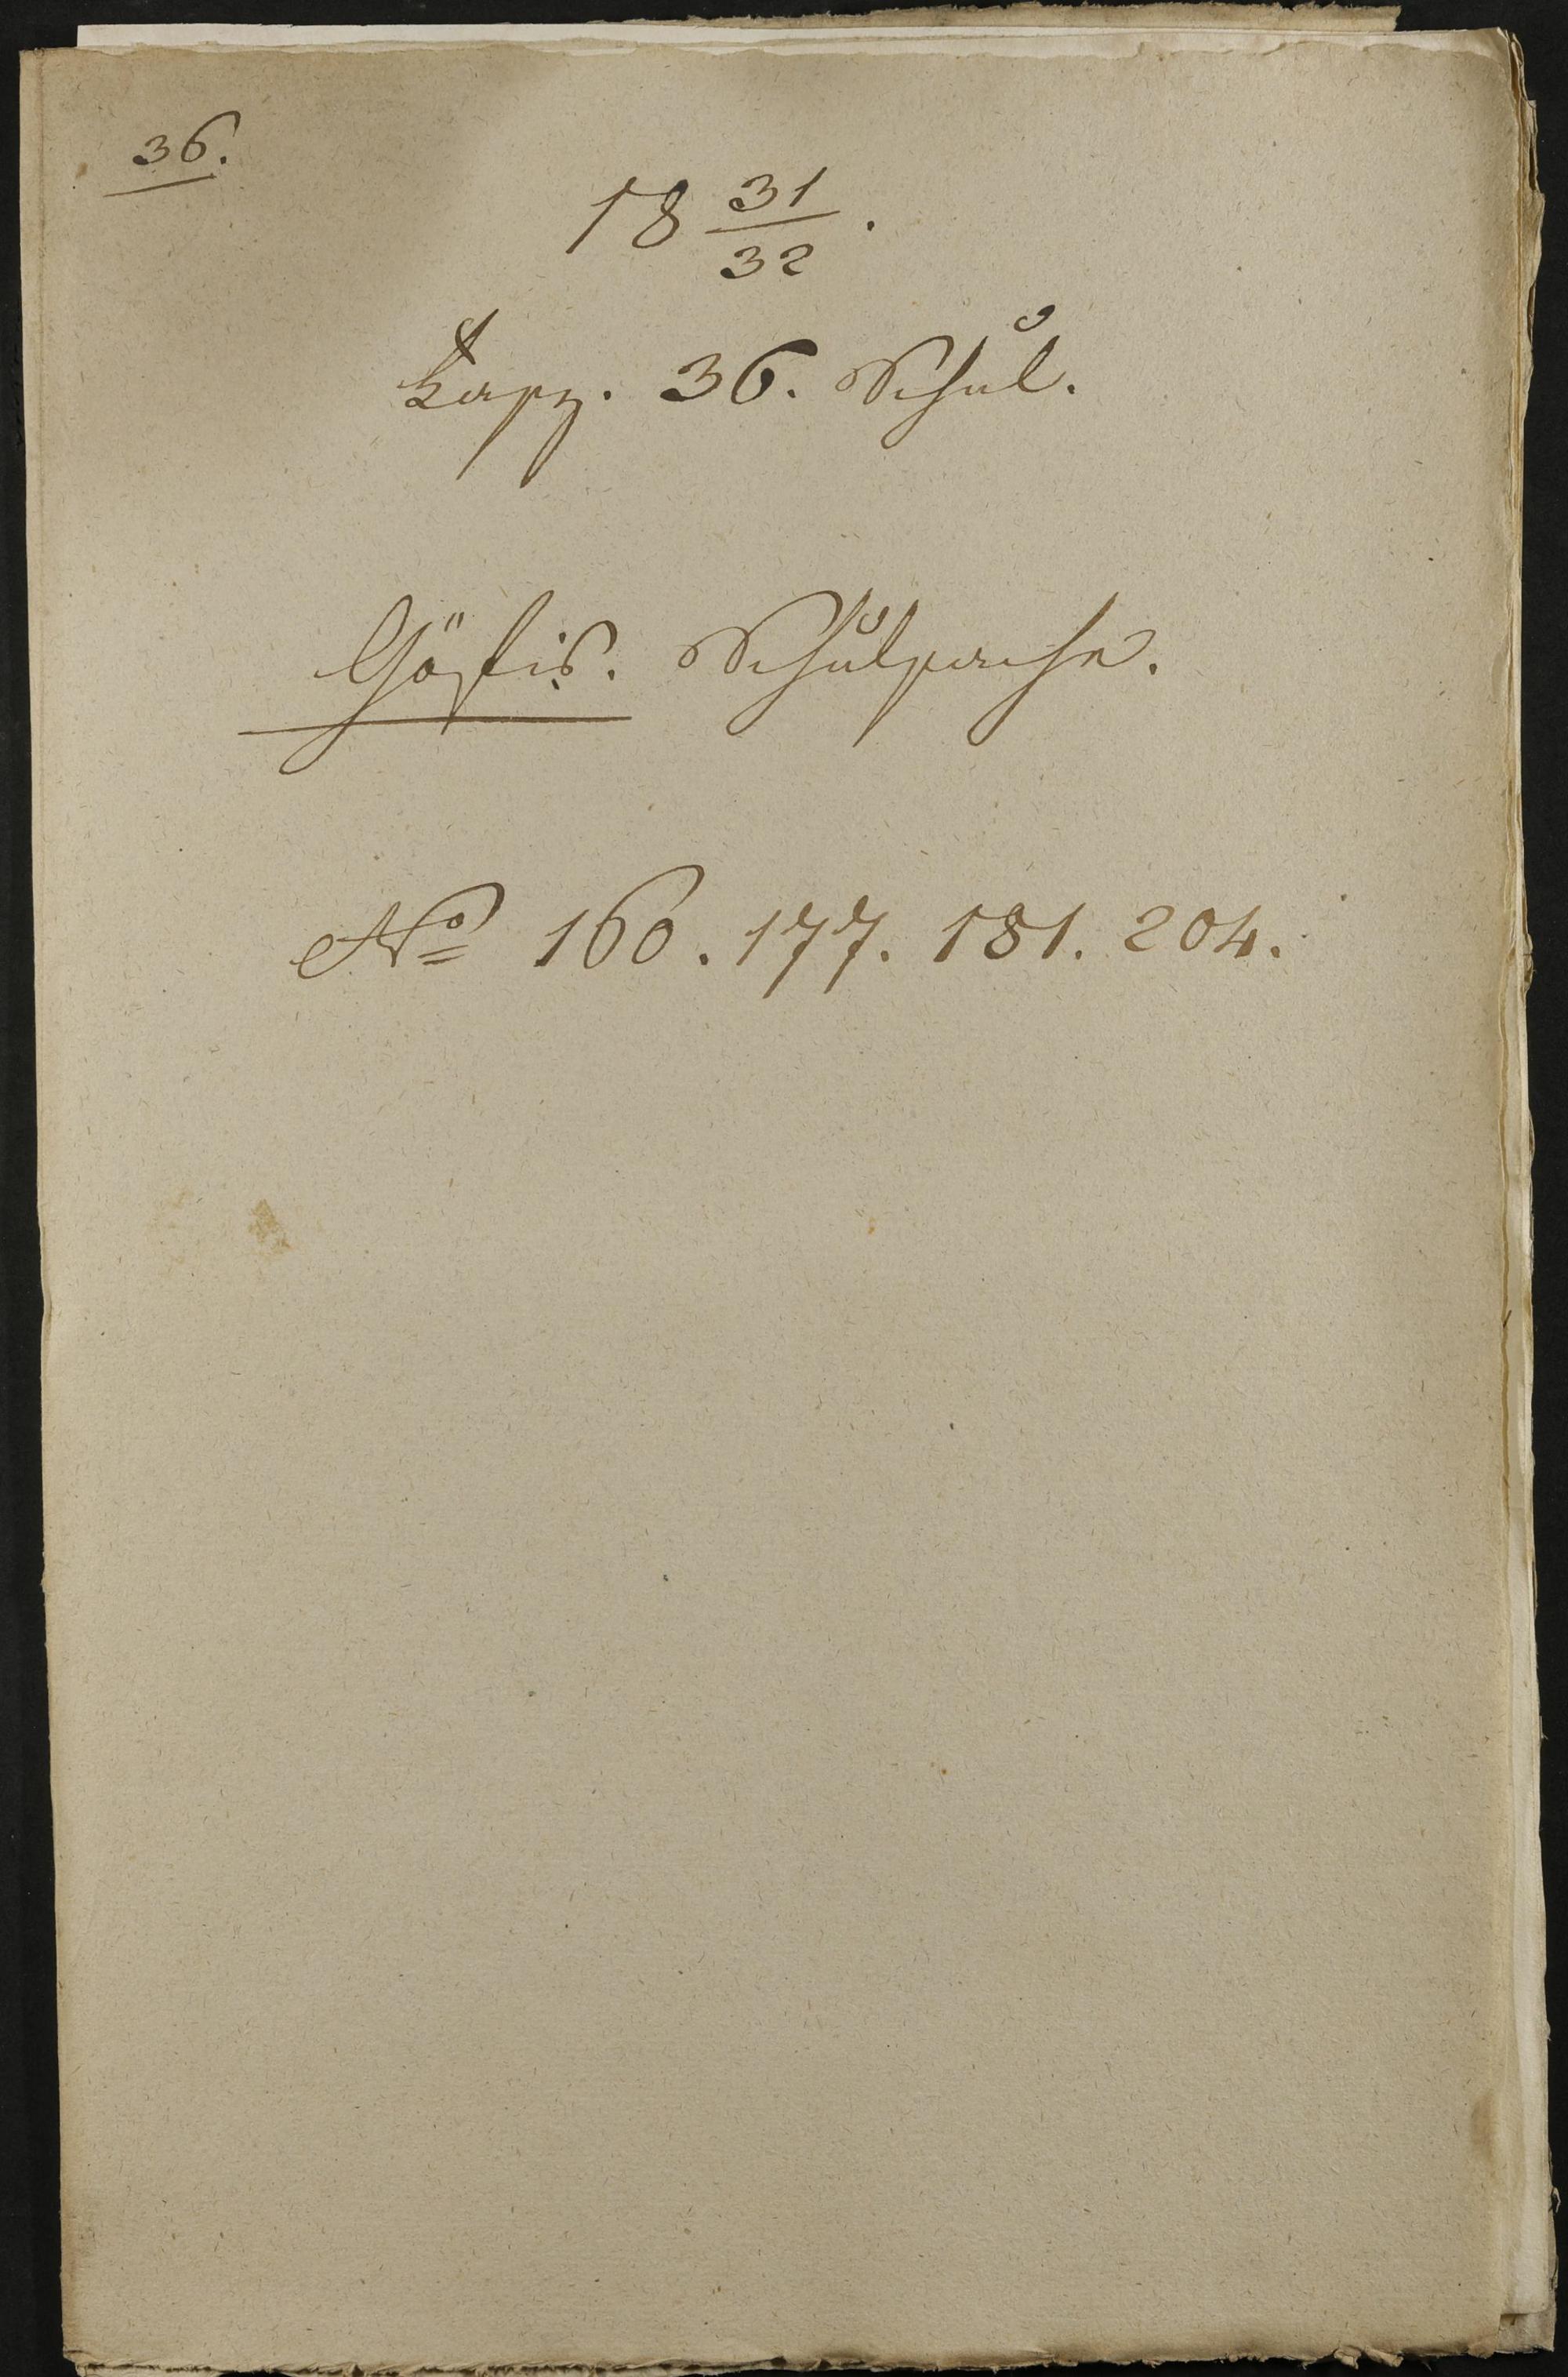 36.
18 31/32.
Kapz. 36. Schul.
Göfis. Schulsache.
No 160. 177. 181. 204.